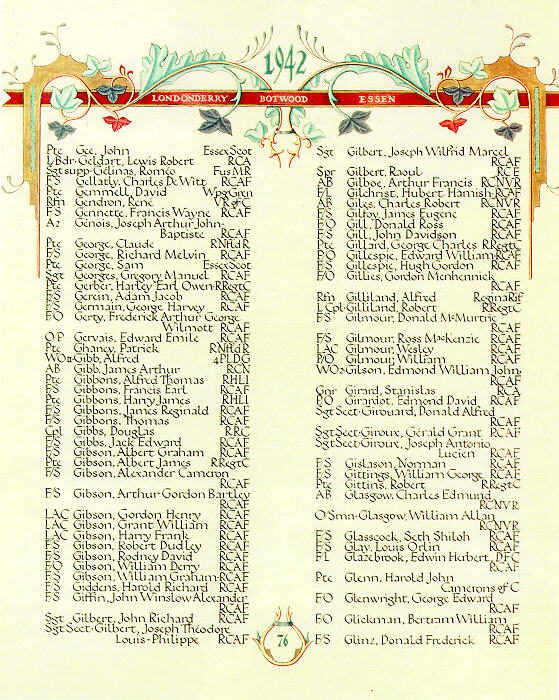 1942
LONDONDERRY BOTWOOD ESSEN
Ptc Gee, John Essex Scot
L/Bdr Geldart, Lewis Robert RCA
Sgt supp Gélinas, Roméo Fus MR
F/S Gellatly, Charles De Witt RCAF
Ptc Gemmell, David Wpg Gren
Rfn Gendron, René VR of C
F/S Gennette, Francis Wayne RCAF
A2 Génois, Joseph Arthur John
Baptiste RCAF
Ptc George, Claude RNfldR
F/S George, Richard Melvin RCAF
Ptc George, Sam Essex Scot
Sgt Georges, Gregory Manuel RCAF
Ptc Gerber, Harley Earl Owen RRegtC
F/S Gerein, Adam Jacob RCAF
F/S Germain, George Harvey RCAF
F/O Gerty, Frederick Arthur George
Wilmott RCAF
O/P Gervais, Edward Emile RCAF
Ptc Ghaney, Patrick RNfldR
WOII Gibb, Alfred 4PLDG
AB Gibb, James Arthur RCN
Ptc Gibbons, Alfred Thomas RHLI
F/S Gibbons, Francis Earl RCAF
Ptc Gibbons, Harry James RHLI
F/S Gibbons, James Reginald RCAF
F/S Gibbons, Thomas RCAF
Cpl Gibbs, Douglas RRC
F/S Gibbs, Jack Edward RCAF
F/S Gibson, Albert Graham RCAF
Ptc Gibson, Albert James RRegtC
F/S Gibson, Alexander Cameron
RCAF
F/S Gibson, Arthur Gordon Bartley
RCAF
LAC Gibson, Gordon Henry RCAF
LAC Gibson, Grant William RCAF
LAC Gibson, Harry Frank RCAF
F/S Gibson, Robert Dudley RCAF
F/S Gibson, Rodney David RCAF
F/O Gibson, William Derry RCAF
F/S Gibson, William Graham RCAF
F/S Giddens, Harold Richard RCAF
F/S Giffin, John Winslow Alexander
RCAF
Sgt Gilbert, John Richard RCAF
Sgt Sect Gilbert, Joseph Théodore
Louis-Philippe RCAF
Sgt Gilbert, Joseph Wilfrid Marcel
RCAF
Spr Gilbert, Raoul RCE
AB Gilboe, Arthur Francis RCNVR
F/L Gilchrist, Hubert Hamish RCAF
AB Giles, Charles Robert RCNVR
F/S Gilfoy, James Eugene RCAF
F/O Gill, Donald Ross RCAF
F/S Gill, John Davidson RCAF
Ptc Gillard, George Charles RRegtC
P/O Gillespie, Edward William RCAF
F/S Gillespie, Hugh Gordon RCAF
F/O Gillies, Gordon Menhennick
RCAF
Rfn Gilliland, Alfred Regina Rif
L Cpl Gilliland, Robert RRegtC
F/S Gilmour, Donald McMurtrie
RCAF
F/S Gilmour, Ross MacKenzie RCAF
LAC Gilmour, Wesley RCAF
P/O Gilmour, William RCAF
WO2 Gilson, Edmond William John
RCAF
Gnr Girard, Stanislas RCA
P/O Girardot, Edmund David RCAF
Sgt Sect Girouard, Donald Alfred
RCAF
Sgt Sect Giroux, Gérald Grant RCAF
Sgt Sect Giroux, Joseph Antonio
Lucien RCAF
F/S Gislason, Norman RCAF
F/S Gittings, William George RCAF
Ptc Gittins, Robert RRegtC
AB Glasgow, Charles Edmund
RCNVR
O Smn Glasgow, William Allan
RCNVR
F/S Glasscock, Seth Shiloh RCAF
F/S Glay, Louis Orlin RCAF
F/L Glazebrook, Edwin Herbert, DFC
RCAF
Ptc Glenn, Harold John
Camerons of C
F/O Glenwright, George Edward
RCAF
F/O Glickman, Bertram William
RCAF
F/S Glinz, Donald Frederick RCAF
76